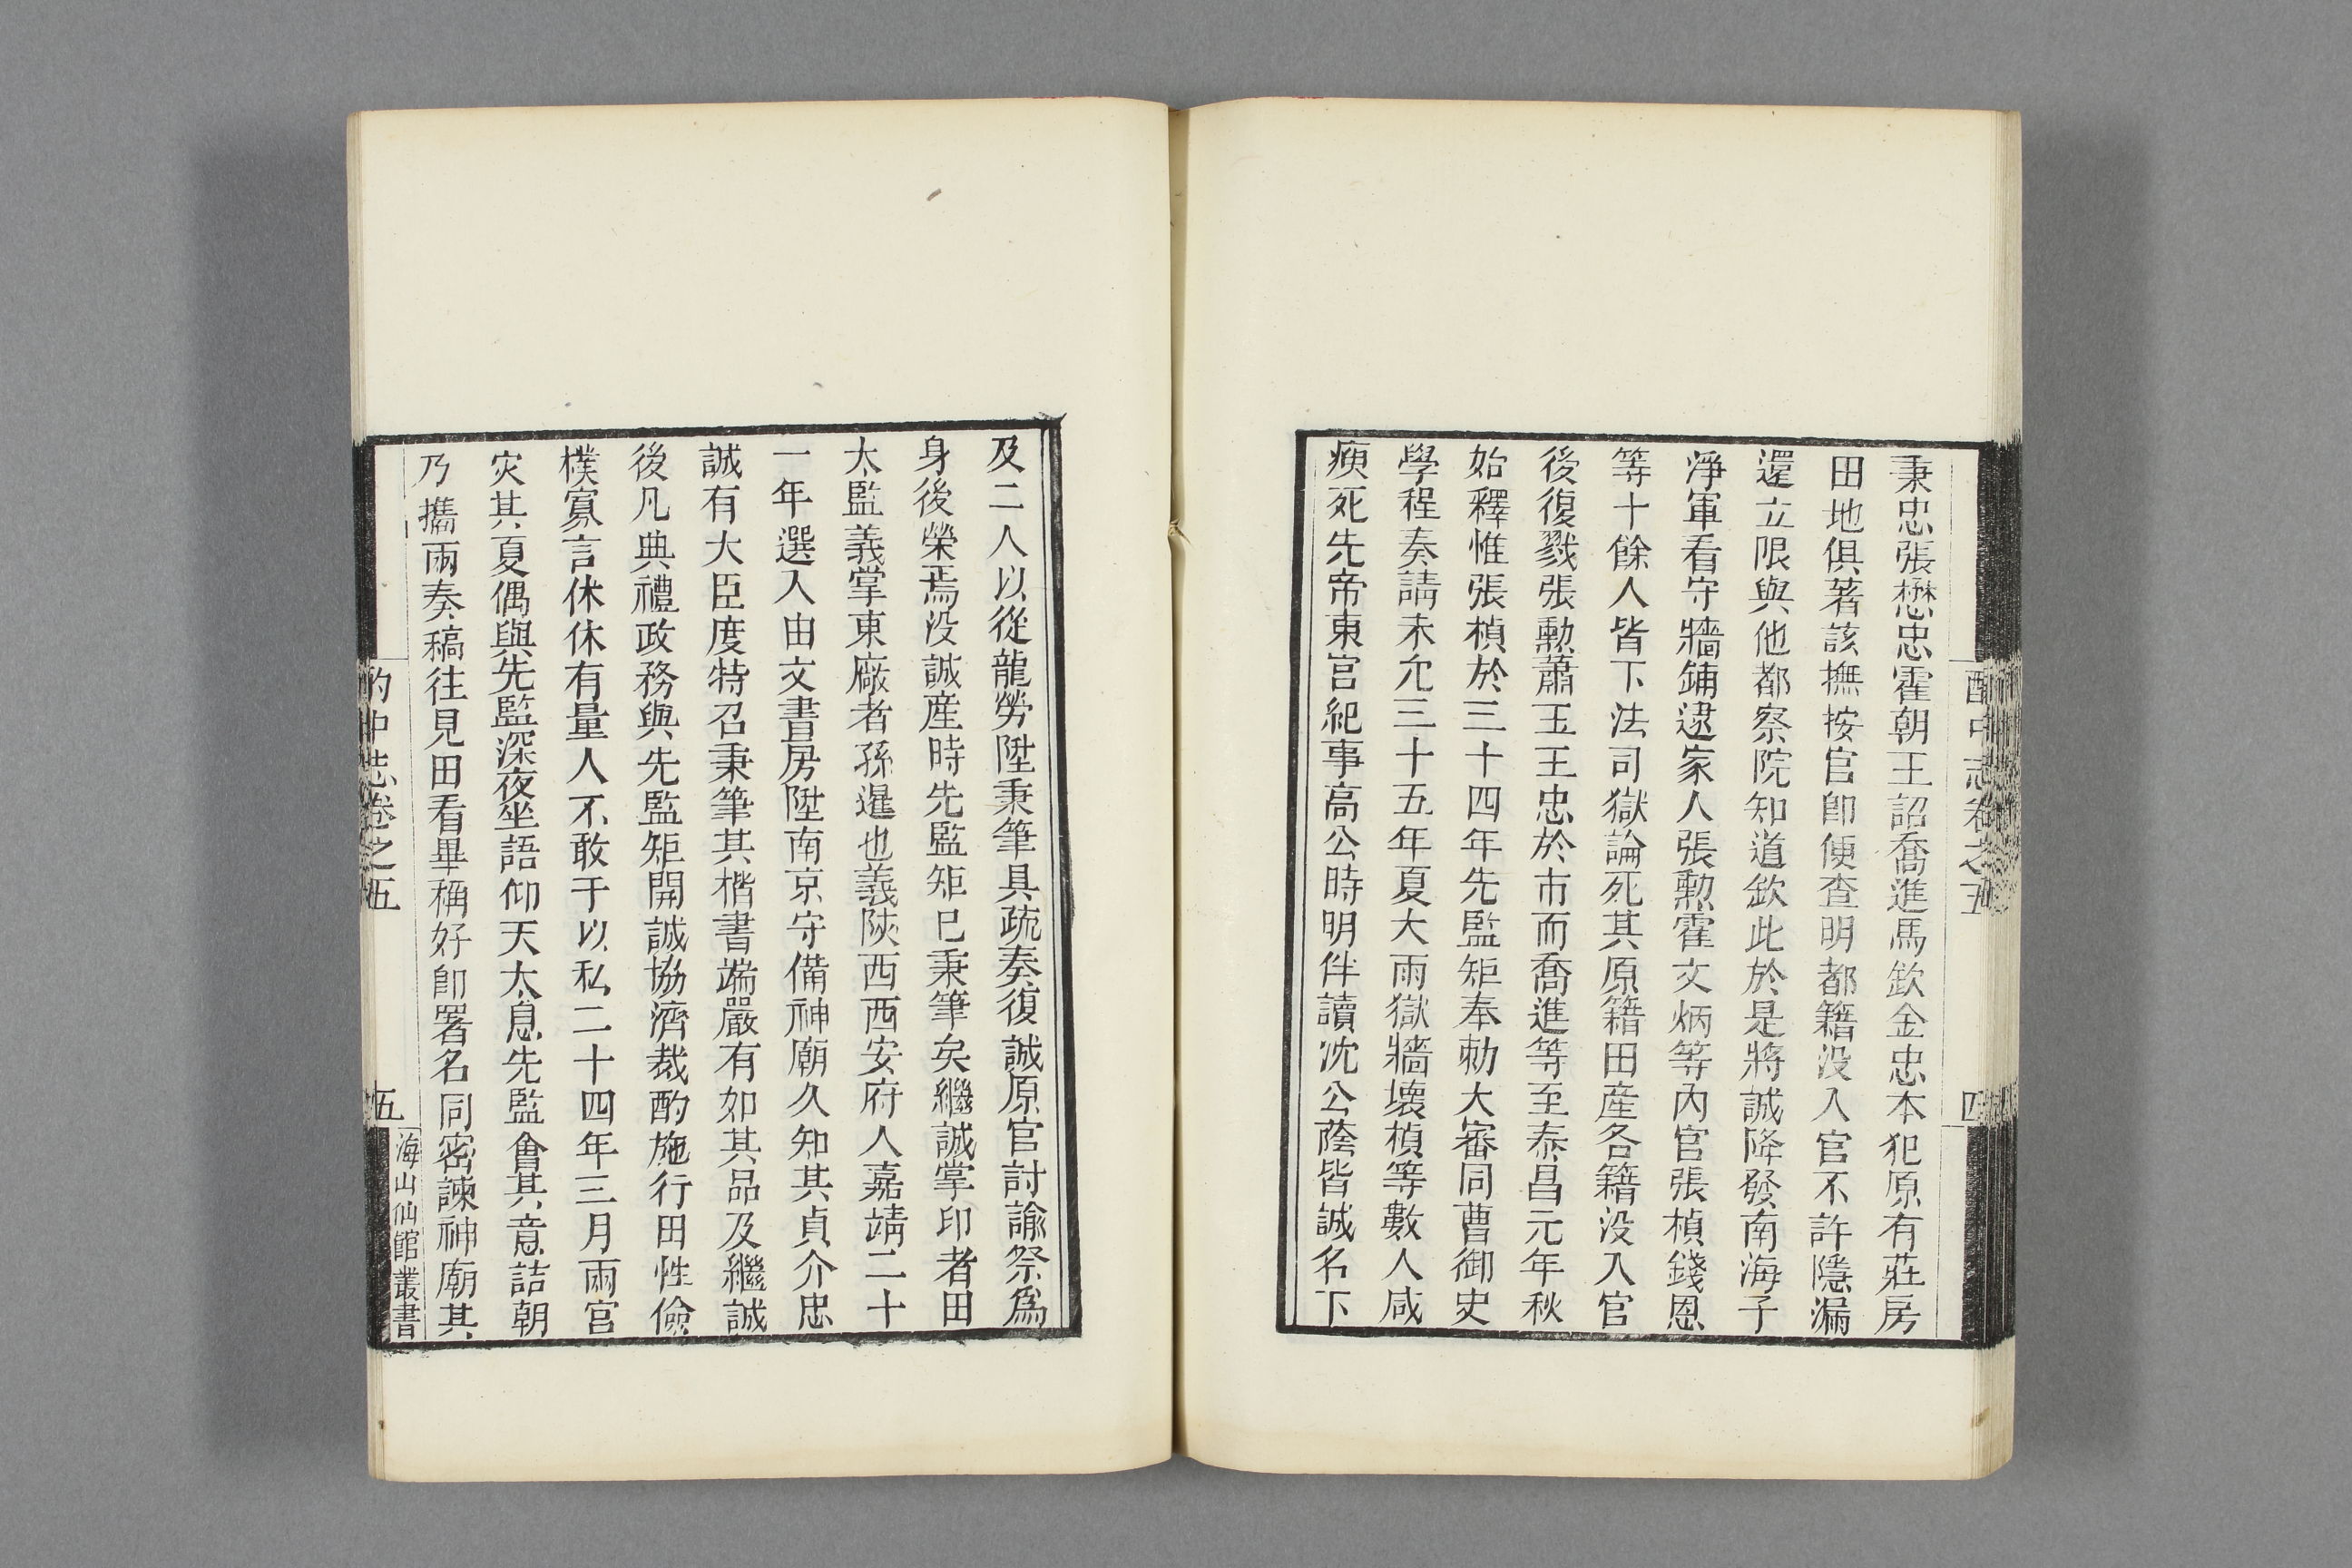 酌中志卷之五
四
秉忠張懋忠霍朝王詔喬進馬欽金忠本犯原有莊房
田地俱著該撫按官卽便查明都籍没入官不許隱漏
還立限與他都察院知道欽此於是將誠降發南海子
淨軍看守牆鋪逮家人張勲霍文炳等內官張楨錢恩
等十餘人皆下法司獄論死其原籍田産各籍没入官
後復戮張勲蕭玉王忠於市而喬進等至泰昌元年秋
始釋惟張楨於三十四年先監矩奉勅大審同曹御史
學程奏請未允三十五年夏大雨獄牆壞楨等數人咸
瘐死先帝東宮紀事高公時明伴讀沈公蔭皆誠名下
及二人以從龍勞陞秉筆具疏奏復誠原官討諭祭爲
身後榮焉没誠産時先監矩巳秉筆矣繼誠掌印者田
太監義掌東廠者孫暹也義陝西西安府人嘉靖二十
一年選入由文書房陞南京守備神廟久知其貞介忠
誠有大臣度特召秉筆其楷書端嚴有如其品及繼誠
後凡典禮政務與先監矩開誠協濟裁酌施行田性儉
樸寡言休休有量人不敢于以私二十四年三月兩宮
灾其夏偶與先監深夜坐語仰天太息先監會其意詰朝
乃攜兩奏稿往見田看畢稱好卽署名同密諫神廟其
酌中志卷之五
五
海山仙館叢書